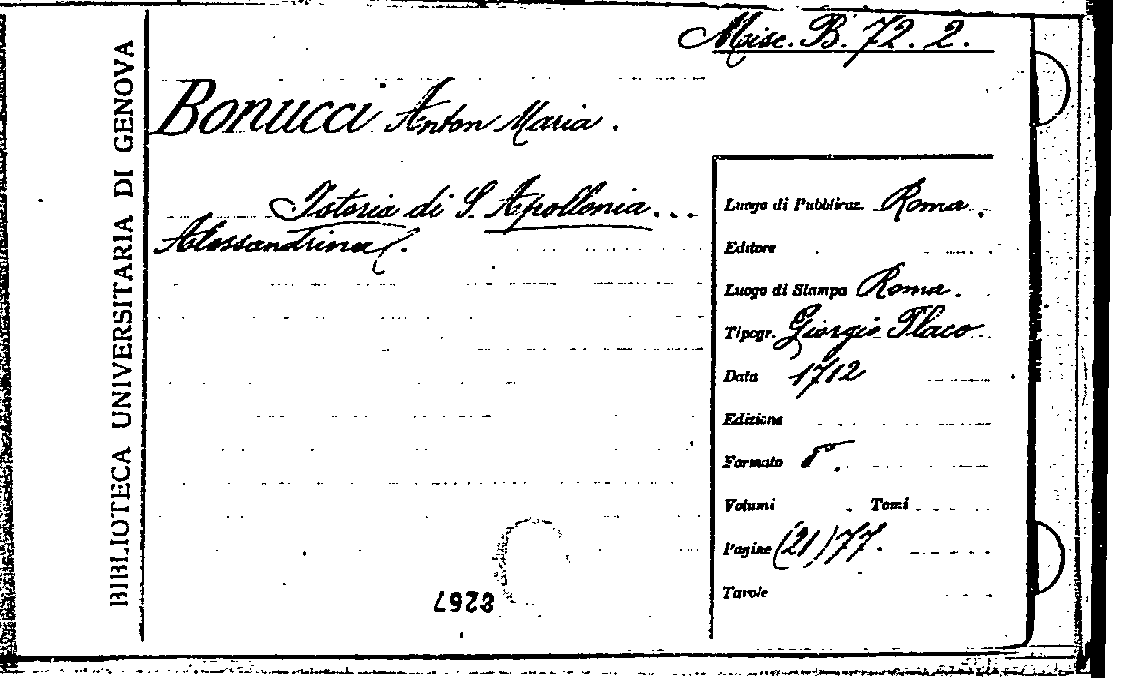 BIBLIOTECA UNIVERSITARIA DI GENOVA
Misc. B. 72. 2.
Bonucci Anton Maria.
Istoria di S. Apollonia...
Alessandrina.
Luogo di Pubblicaz. Roma.
Editore
Luogo di Stampa Roma.
Tipogr. Giorgio Placo.
Data 1712
Edizione
Formato 8°.
Volumi Tomi
Pagine (21) 77.
Tavole